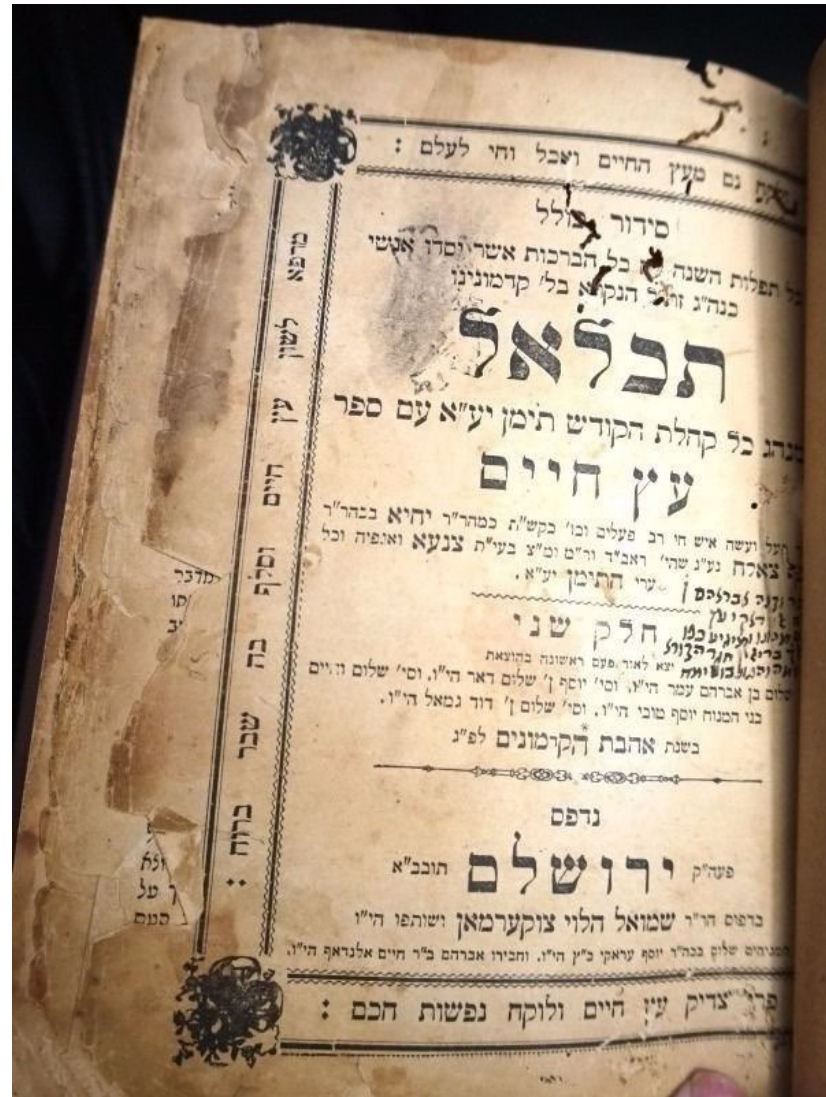 גם מעץ החיים ואכל וחי לעלם :
סידור כולל
כל תפלות השנה כל הברכות אשר יסדו אנשי
כנה"ג הנקרא בל' קדמונינו
תכלאל
כמנהג כל קהלת הקודש תימן יע"א עם ספר
עץ חיים
פעל ועשה איש חי רב פעלים וכו' כקש"ת כמהר"ר יחיא בכהר"ר
צאלח נע"ג שהי' ראב"ד ור"מ ומ"צ בעי"ת צנעא ואגפיה וכל
ערי התימן יע"א .
חלק שני
יצא לאור פעם ראשונה בהוצאת
שלום בן אברהם עמר הי"ו, וסי' יוסף ן' שלום דאר הי"ו, וסי' שלום וחיים
בני המנוח יוסף טובי הי"ו, וסי' שלום ן' דוד גמאל הי"ו.
בשנת אהבת הקדמונים לפ"ג
נדפס
פעה"ק ירושלם תובב"א
בדפוס הר"ר שמואל הלוי צוקערמאן ושותפו הי"ו
שלום בכה"ר יוסף עראקי כ"ץ הי"ו, וחבירו אברהם ב"ר חיים אלנדאף הי"ו.
פרי צדיק עץ חיים ולוקח נפשות חכם :
מרפא לשון עץ חיים וסלף בה שבר ברוח :
מדבר
ולא
על